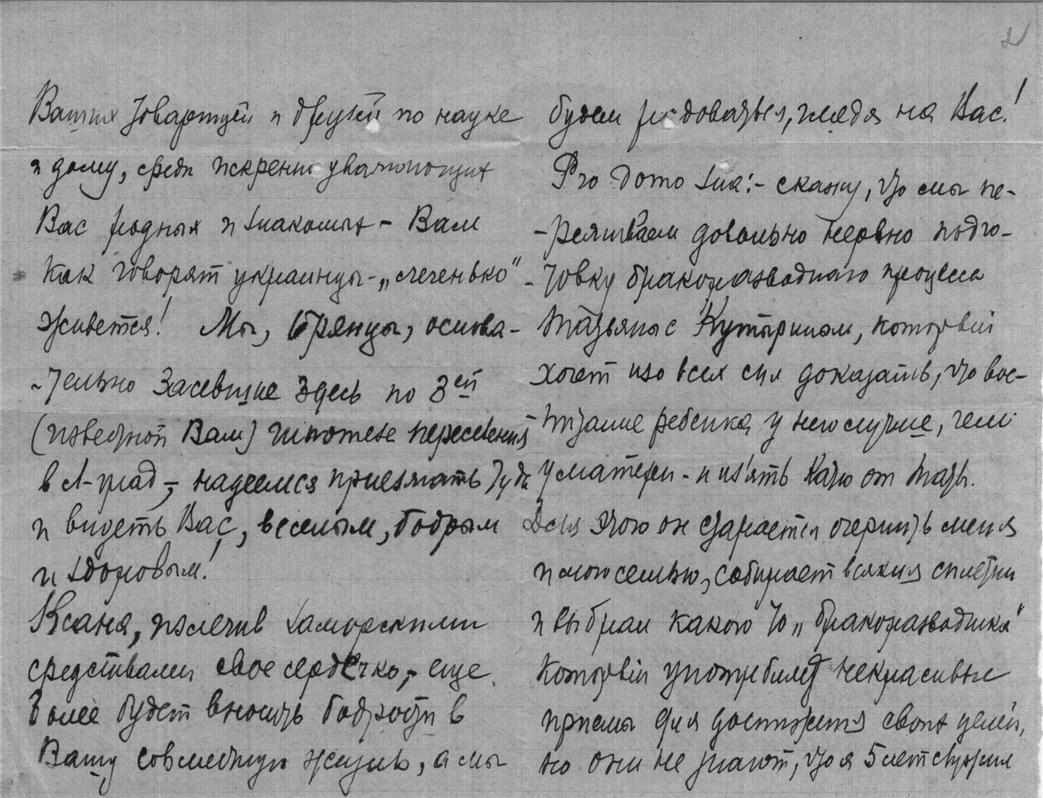 Ваших товарищей и друзей по науке
и дому, среди искренно уважающих
Вас родных и знакомых – Вам
как говорят украинцы – „легенько"
живется! Мы, брянцы, основа-
-тельно засевшие здесь по 3ей
(известной Вам) гипотезе переселения
в Л-град, – надеемся приезжать туда
и видеть Вас, веселым, бодрым
и здоровым!
Ксана, излечив заморскими
средствами свое сердечко, – еще
более будет вносить бодрости в
Вашу совместную жизнь, а мы
2
будем радоваться, глядя на Вас!
Pro domo sua: – скажу, что мы пе-
-реживаем довольно нервно подго-
-товку бракоразводного процесса
Татьяны с Кутыриным, который
хочет изо всех сил доказать, что вос-
-питание ребенка у него лучше, чем
у матери – и из'ять от
Для этого он старается очернить меня
и мою семью, собирает всякия сплетни
и выбрал какого то „бракоразводника"
который употребляет некрасивые
приемы для достижения своих целей,
но они не знают, что я 5 лет служил